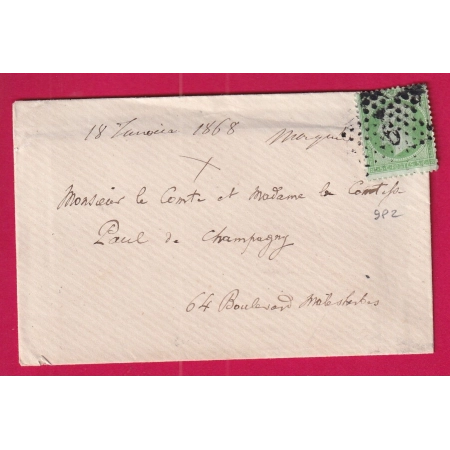 18 Janvier 1868
Monsieur le Comte et Madame la Comtesse
982
Paul de Champagny
64 Boulevard Malesherbes